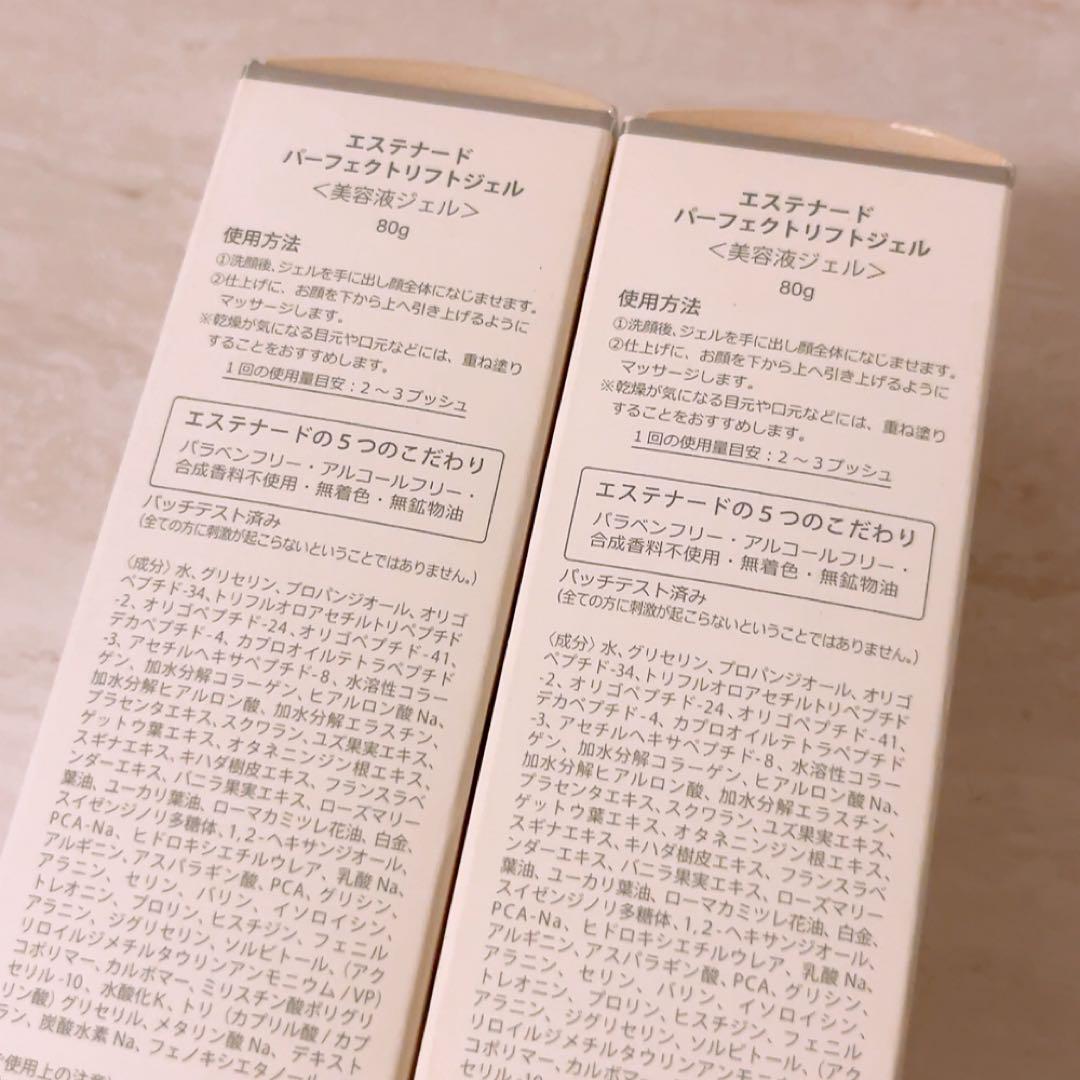 エステナード
パーフェクトリフトジェル
＜美容液ジェル＞
80g
使用方法
①洗顔後、ジェルを手に出し顔全体になじませます。
②仕上げに、お顔を下から上へ引き上げるように
マッサージします。
※乾燥が気になる目元や口元などには、重ね塗り
することをおすすめします。
1回の使用量目安：2～3プッシュ
エステナードの5つのこだわり
パラベンフリー・アルコールフリー・
合成香料不使用・無着色・無鉱物油
パッチテスト済み
(全ての方に刺激が起こらないということではありません。)
〈成分〉水、グリセリン、プロパンジオール、オリゴ
ペプチド-34、トリフルオロアセチルトリペプチド
-2、オリゴペプチド-24、オリゴペプチド-41、
デカペプチド-4、カプロオイルテトラペプチド
-3、アセチルヘキサペプチド-8、水溶性コラー
ゲン、加水分解コラーゲン、ヒアルロン酸Na、
加水分解ヒアルロン酸、加水分解エラスチン、
プラセンタエキス、スクワラン、ユズ果実エキス、
ゲットウ葉エキス、オタネニンジン根エキス、
スギナエキス、キハダ樹皮エキス、フランスラベ
ンダーエキス、バニラ果実エキス、ローズマリー
葉油、ユーカリ葉油、ローマカミツレ花油、白金、
スイゼンジノリ多糖体、1,2-ヘキサンジオール、
PCA-Na、ヒドロキシエチルウレア、乳酸Na、
アルギニン、アスパラギン酸、PCA、グリシン、
アラニン、セリン、バリン、イソロイシン、
トレオニン、プロリン、ヒスチジン、フェニル
アラニン、ジグリセリン、ソルビトール、（アク
リロイルジメチルタウリンアンモニウム/VP）
コポリマー、カルボマー、ミリスチン酸ポリグリ
セリル-10、水酸化K、トリ（カプリル酸/カプ
リン酸）グリセリル、メタリン酸Na、デキスト
ラン、炭酸水素Na、フェノキシエタノール
使用上の注意
エステナード
パーフェクトリフトジェル
＜美容液ジェル＞
80g
使用方法
①洗顔後、ジェルを手に出し顔全体になじませます。
②仕上げに、お顔を下から上へ引き上げるように
マッサージします。
※乾燥が気になる目元や口元などには、重ね塗り
することをおすすめします。
1回の使用量目安：2～3プッシュ
エステナードの5つのこだわり
パラベンフリー・アルコールフリー・
合成香料不使用・無着色・無鉱物油
パッチテスト済み
(全ての方に刺激が起こらないということではありません。)
〈成分〉水、グリセリン、プロパンジオール、オリゴ
ペプチド-34、トリフルオロアセチルトリペプチド
-2、オリゴペプチド-24、オリゴペプチド-41、
デカペプチド-4、カプロオイルテトラペプチド
-3、アセチルヘキサペプチド-8、水溶性コラー
ゲン、加水分解コラーゲン、ヒアルロン酸Na、
加水分解ヒアルロン酸、加水分解エラスチン、
プラセンタエキス、スクワラン、ユズ果実エキス、
ゲットウ葉エキス、オタネニンジン根エキス、
スギナエキス、キハダ樹皮エキス、フランスラベ
ンダーエキス、バニラ果実エキス、ローズマリー
葉油、ユーカリ葉油、ローマカミツレ花油、白金、
スイゼンジノリ多糖体、1,2-ヘキサンジオール、
PCA-Na、ヒドロキシエチルウレア、乳酸Na、
アルギニン、アスパラギン酸、PCA、グリシン、
アラニン、セリン、バリン、イソロイシン、
トレオニン、プロリン、ヒスチジン、フェニル
アラニン、ジグリセリン、ソルビトール、（アク
リロイルジメチルタウリンアンモ
コポリマー、カルボマー
セリル-10